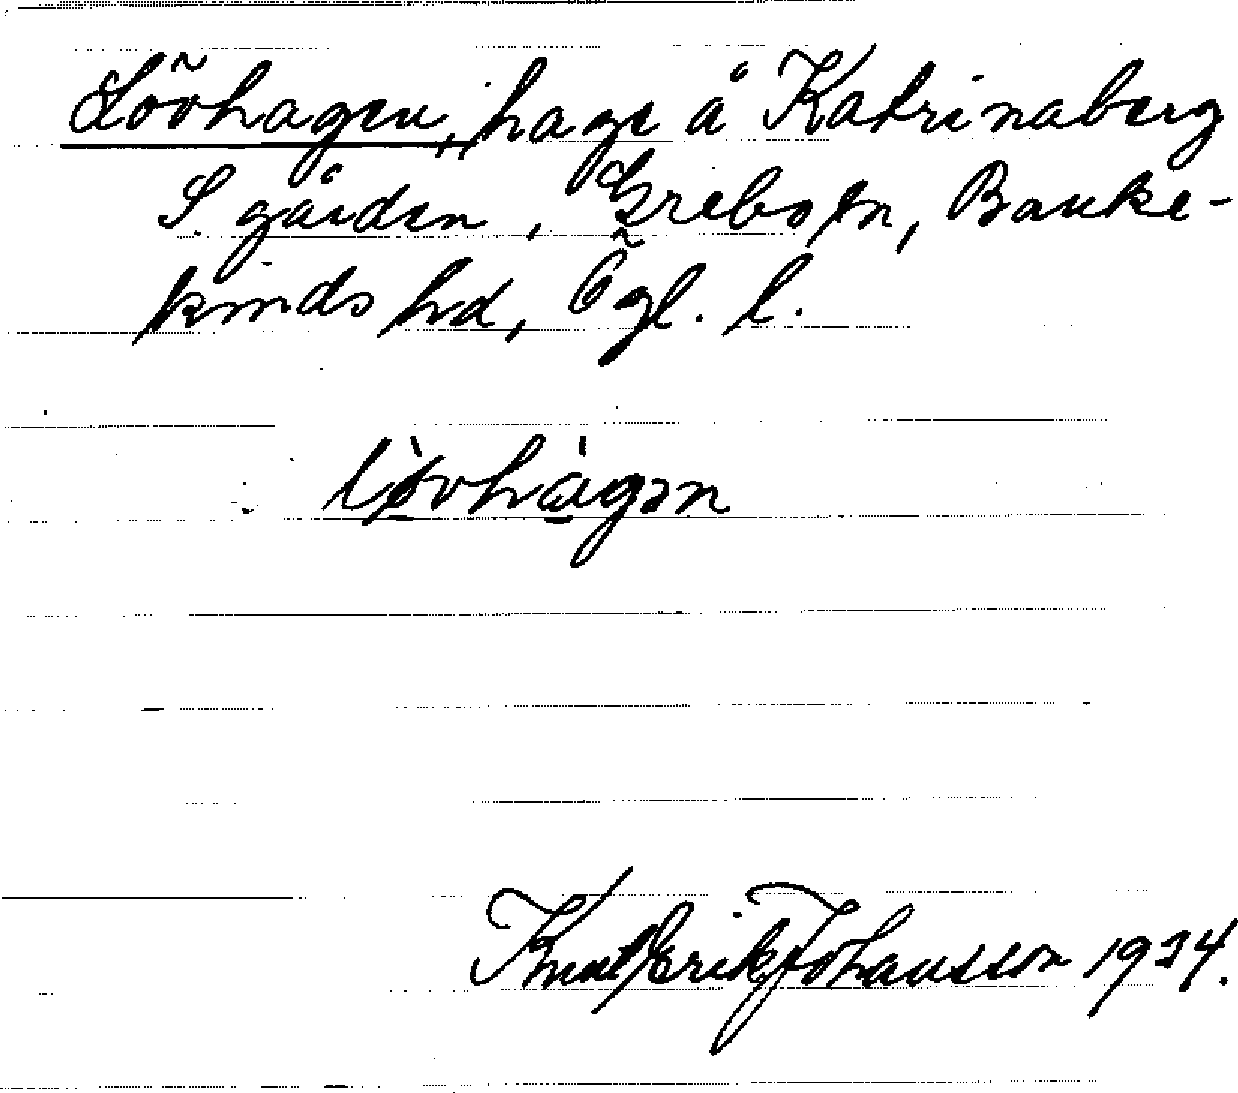 Lövhagen, hage å Katrinaberg
S. gården, Grebo sn, Banke-
kinds hd, Ögl. l.
lö̀vhàgən
Knut Erik Johansson 1934.